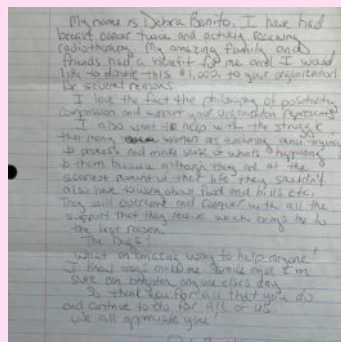 My name is Debra Bonito. I have had
breast cancer twice and actively receiving
radiotherapy. My amazing family and
friends had a benefit for me and I would
like to donate this $1,000 to your organization
for several reasons.
I love the fact the philosophy of positivity
compassion and warrior your organization represents
I also want to help with the struggle
that many women are enduring and trying
to process and make sense of what's happening
to them because although they are at the
scariest moment of their life they shouldn't
also have to worry about food and bills etc.
They will overcome and conquer with all the
support that they receive which brings me to
the last reason.
The bags!
What an amazing way to help anyone!
I know bags make me smile and I'm
sure can brighten anyone else's day
So thank you for all that you do
and continue to do for all of us.
We all appreciate you!